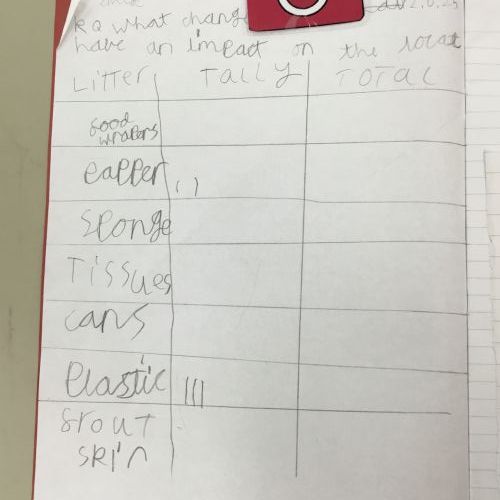 what chang
have an impact on the local
Litter TALLY TOTAL
food
wrapers
Papper ||
sponge
Tissues
cans
Plastic |||
frout
skin